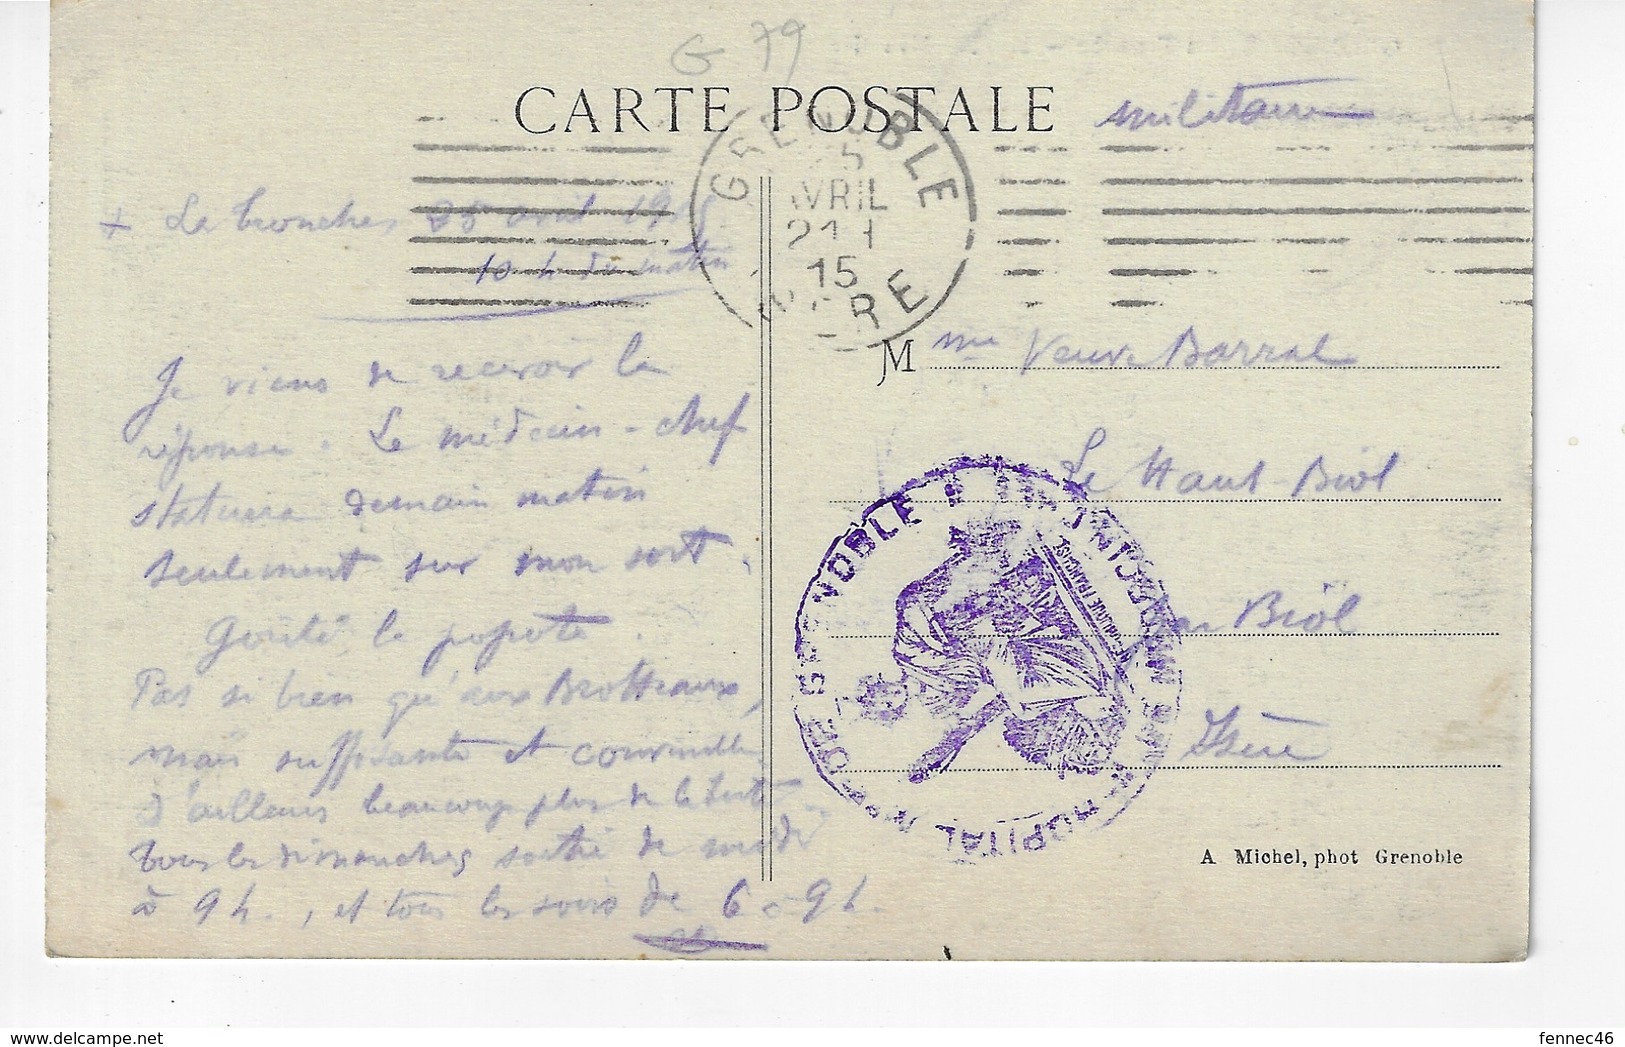 G 79
CARTE POSTALE militaire
GRENOBLE
25
AVRIL
15
ISERE
+ La Tronche, 25 avril 1915
10 h du matin
Je viens de recevoir la
réponse. Le médecin-chef
statuera demain matin
seulement sur mon sort.
Goûté la popote.
Pas si bien qu'aux Brotteaux,
mais suffisante et convenable
D'ailleurs beaucoup plus de liberté
Tous les dimanches sortie de midi
à 9 h., et tous les soirs de 6 à 9 h.
M me Veuve Barral
Le Haut-Biol
par Biol
Isère
HOPITAL DE GRENOBLE
REPUBLIQUE FRANÇAISE
A. Michel, phot Grenoble
fennec46